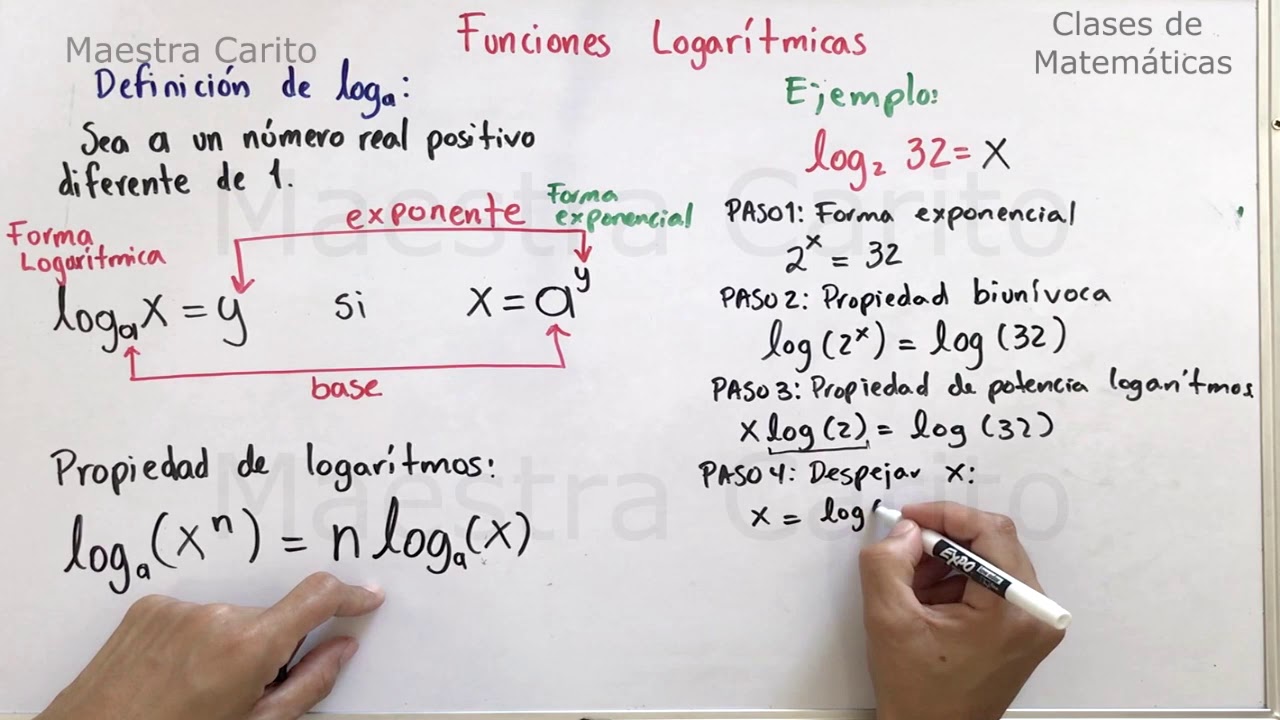 Maestra Carito
Funciones Logarítmicas
Clases de
Matemáticas
Definición de logₐ:
Sea a un número real positivo
diferente de 1.
Forma
Logarítmica
exponente
Forma
exponencial
logₐx = y si x = aʸ
base
Propiedad de logarítmos:
logₐ(xⁿ) = n logₐ(x)
Ejemplo:
log₂ 32 = x
PASO 1: Forma exponencial
2ˣ = 32
PASO 2: Propiedad biunívoca
log(2ˣ) = log(32)
PASO 3: Propiedad de potencia logarítmos
x log(2) = log(32)
PASO 4: Despejar x:
x = log(
EXPO
Maestra Carito
Maestra Carito